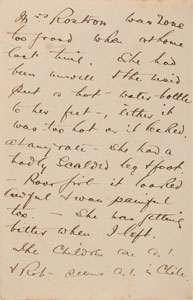 Mrs Rostron was none
too grand when at home
last time. She had
been unwell & the maid
put a hot-water bottle
to her feet -, either it
was too hot or it leaked.
at any rate - She had a
badly scalded leg & foot
- Poor girl it looked
awful & was painful
too. - She was getting
better when I left.
The Children are A.1.
& Rob- seems A.1. in Chile